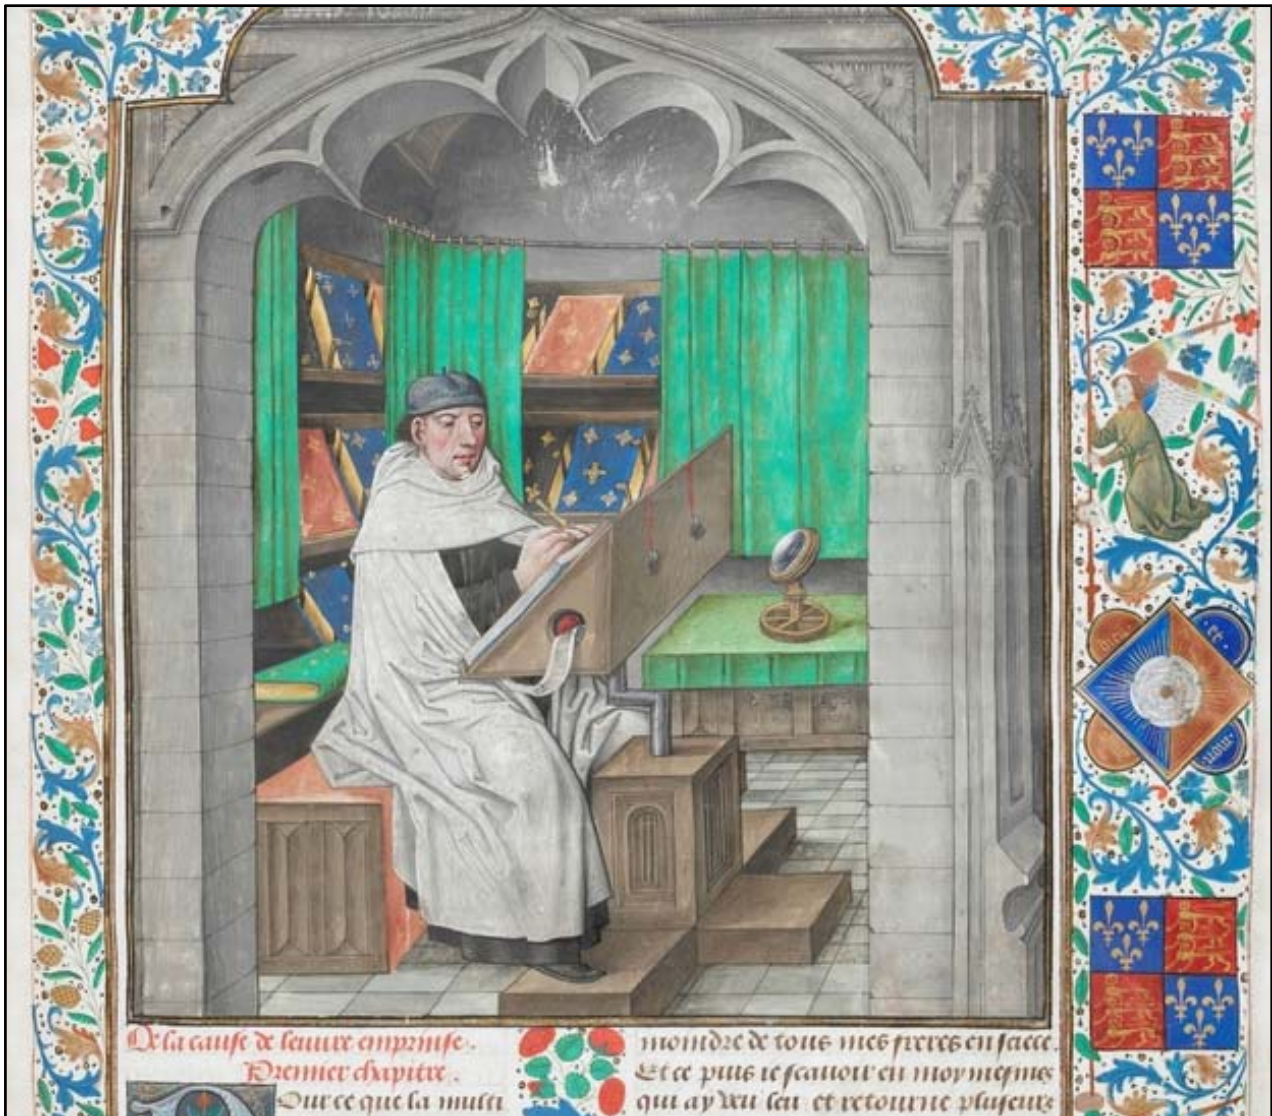 De la cause de leuure emprinse.
Premier chapitre.
Pour ce que la multi
moindre de tous mes freres en sciece.
Et ce puis ie scauoir en moy mesmes
qui ay veu leu et retourne pluseurs
et